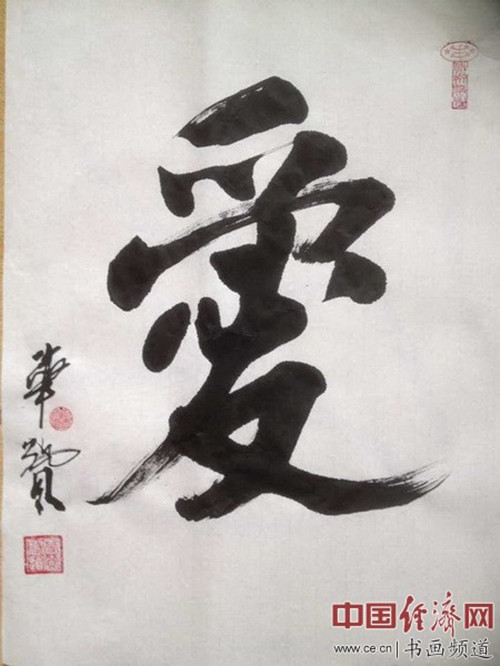 愛
華
中国经济网
www.ce.cn|书画频道